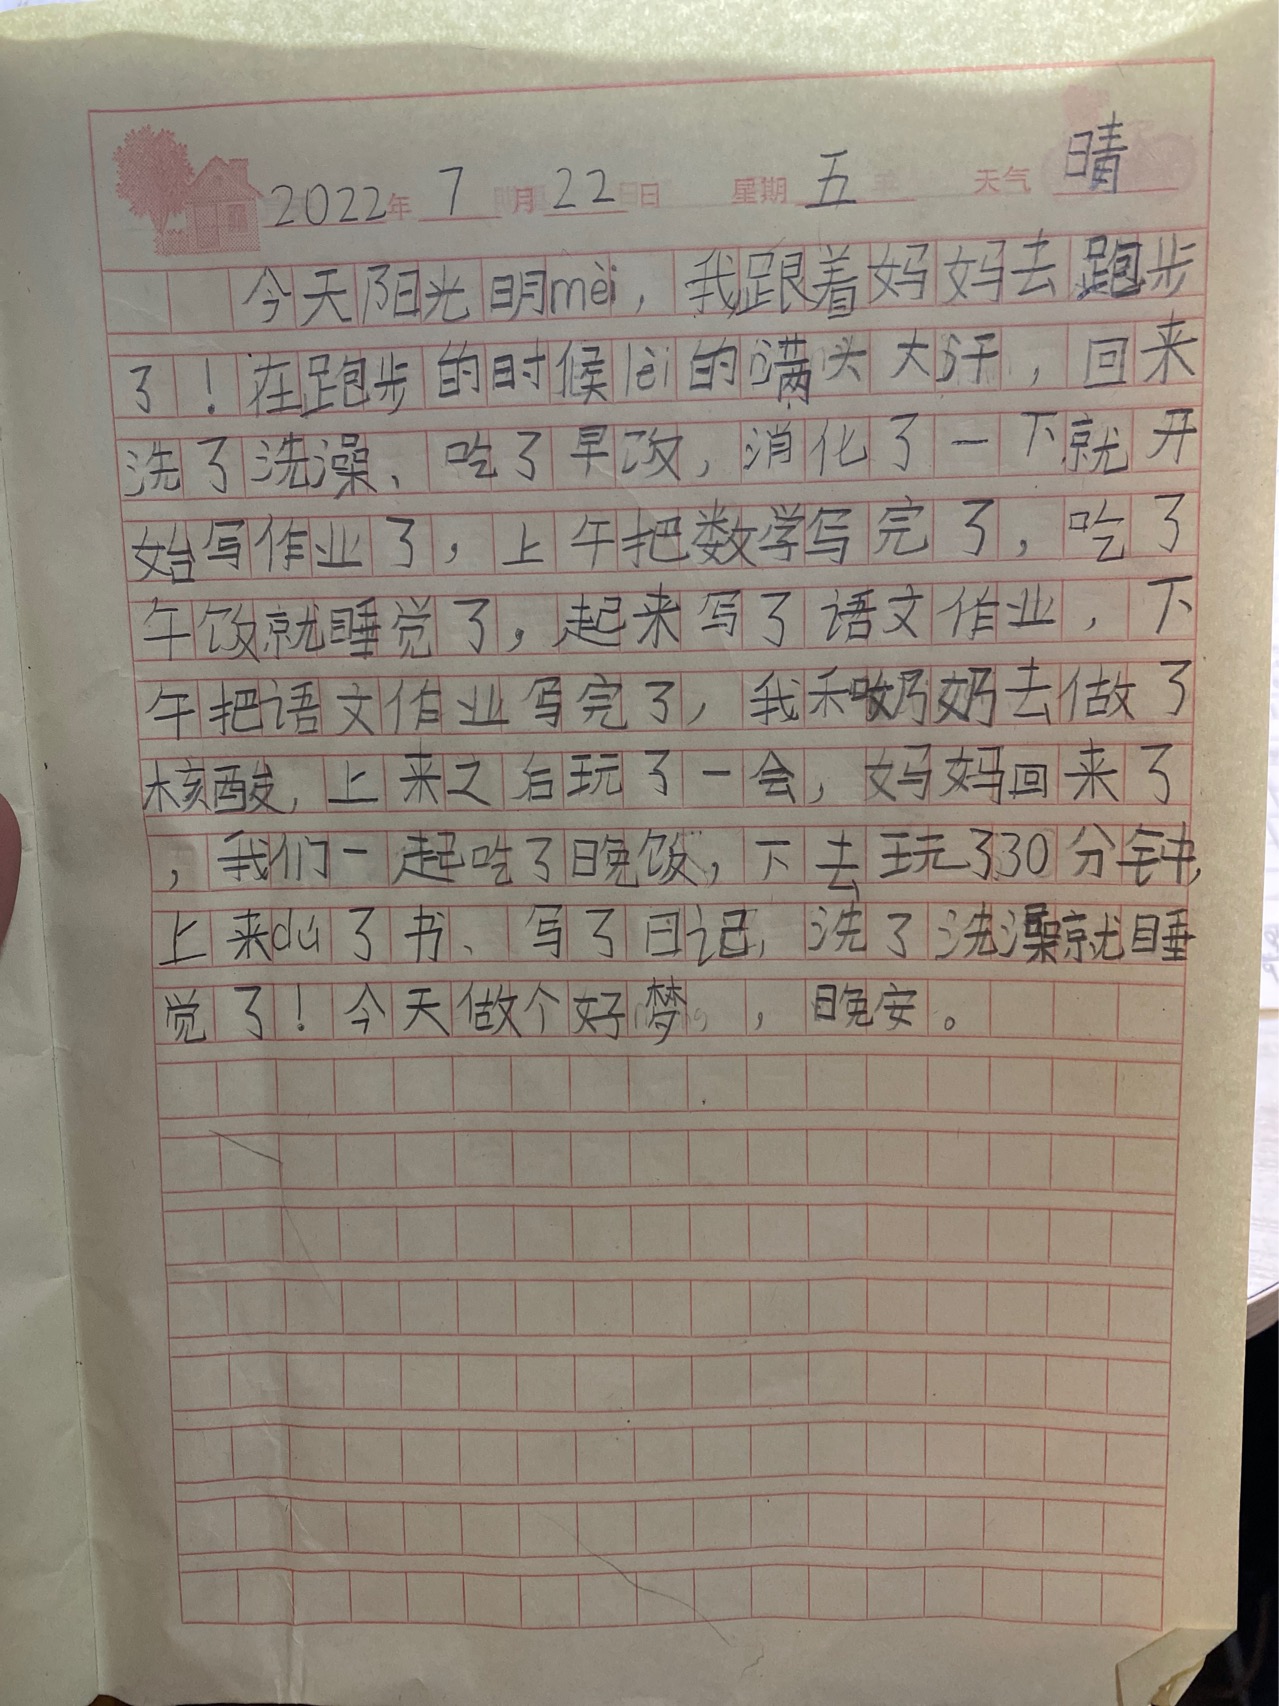 2022年 7月 22日 星期 五 天气 晴
今天阳光明mèi，我跟着妈妈去跑步
了！在跑步的时候lèi的满头大汗，回来
洗了洗澡、吃了早饭，消化了一下就开
始写作业了，上午把数学写完了，吃了
午饭就睡觉了，起来写了语文作业，下
午把语文作业写完了，我和奶奶去做了
核酸，上来之后玩了一会，妈妈回来了
，我们一起吃了晚饭，下去玩了30分钟，
上来dú了书、写了日记，洗了洗澡就睡
觉了！今天做个好梦，，晚安。